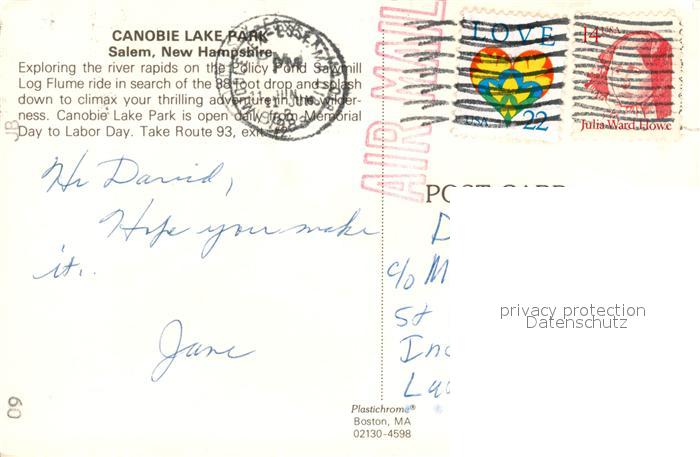 CANOBIE LAKE PARK
Salem, New Hampshire
Exploring the river rapids on the Policy Pond Sawmill
Log Flume ride in search of the 88 foot drop and splash
down to climax your thrilling adventure in the wilder-
ness. Canobie Lake Park is open daily from Memorial
Day to Labor Day. Take Route 93, exit
JB
AIR MAIL
LOVE
USA 22
14 USA
Julia Ward Howe
PM
JUN
1988
Hi David,
Hope you make
it.
Jane
POST CARD
D
c/o M
St
Ind
La
privacy protection
Datenschutz
60
Plastichrome®
Boston, MA
02130-4598